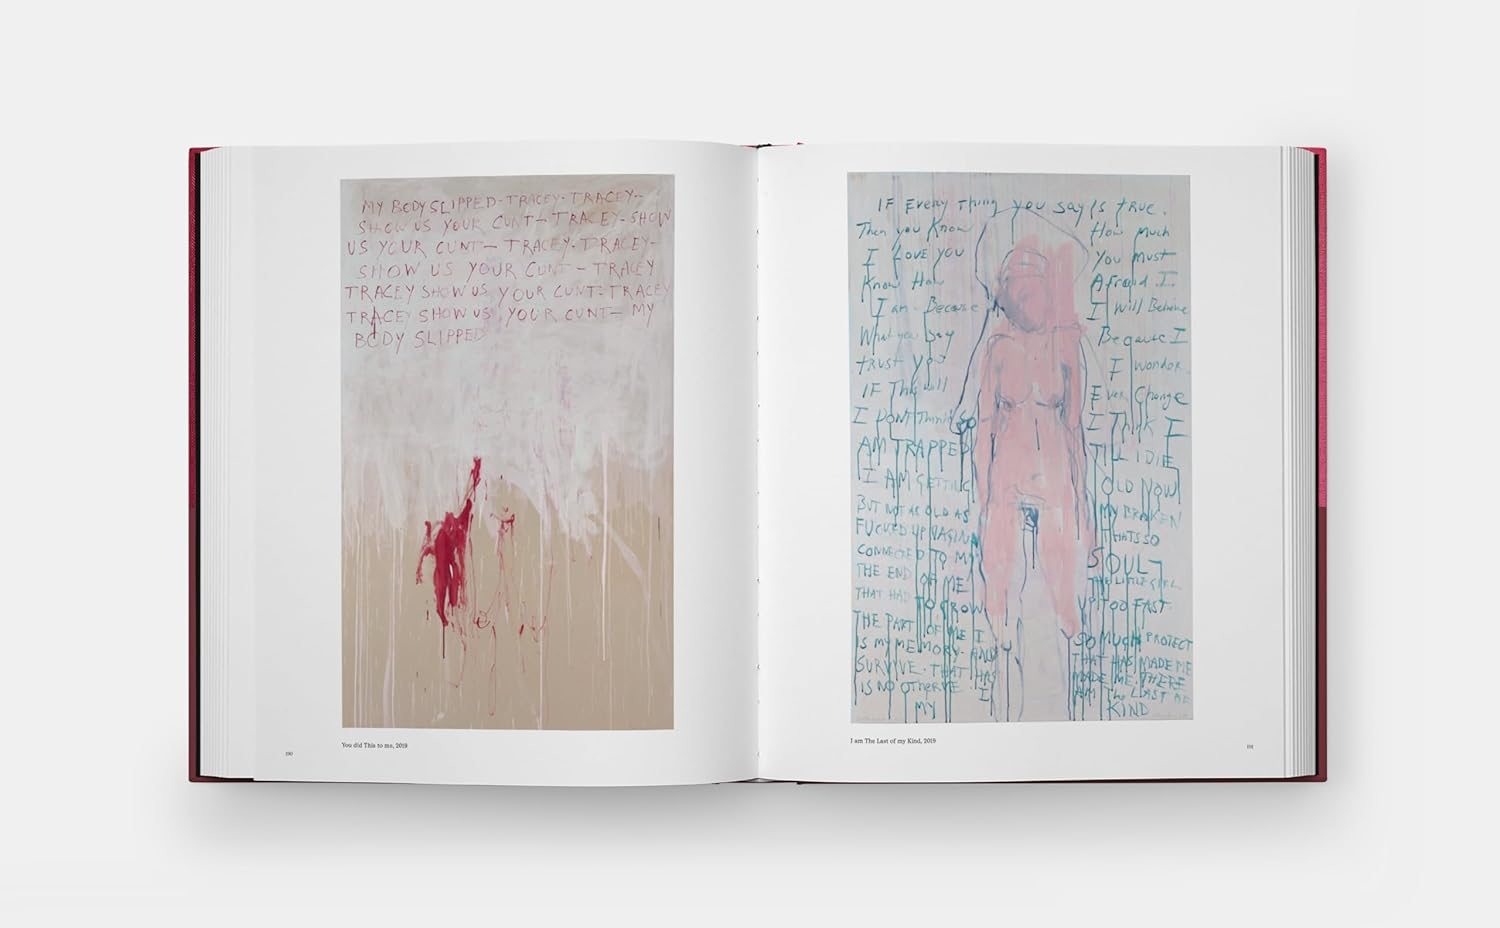 MY BODY SLIPPED - TRACEY - TRACEY -
SHOW US YOUR CUNT - TRACEY - SHOW
US YOUR CUNT - TRACEY - TRACEY -
SHOW US YOUR CUNT - TRACEY
TRACEY SHOW US YOUR CUNT - TRACEY
TRACEY SHOW US YOUR CUNT - MY
BODY SLIPPED
You did This to me, 2019
190
IF Every Thing you say Is true.
Then you Know How Much
I Love you You Must
Know How Afraid I
I am - Because I Will Believe
What you Say Because I
trust you I Wonder
IF This will Ever Change
I DONT Think so I Think I
AM TRAPPED TILL I DIE
I AM GETTING OLD NOW
BUT NOT AS OLD AS MY BROKEN
FUCKED UP VAGINA THATS SO
CONNECTED TO MY SOUL
THE END OF ME THE LITTLE GIRL
THAT HAD TO GROW UP TOO FAST
THE PART OF ME I SO MUCH PROTECT
IS MY MEMORY THAT HAS MADE ME
SURVIVE - THAT HAS MADE ME. THERE
IS NO OTHER I AM The LAST OF
MY KIND
I am The Last of my Kind, 2019